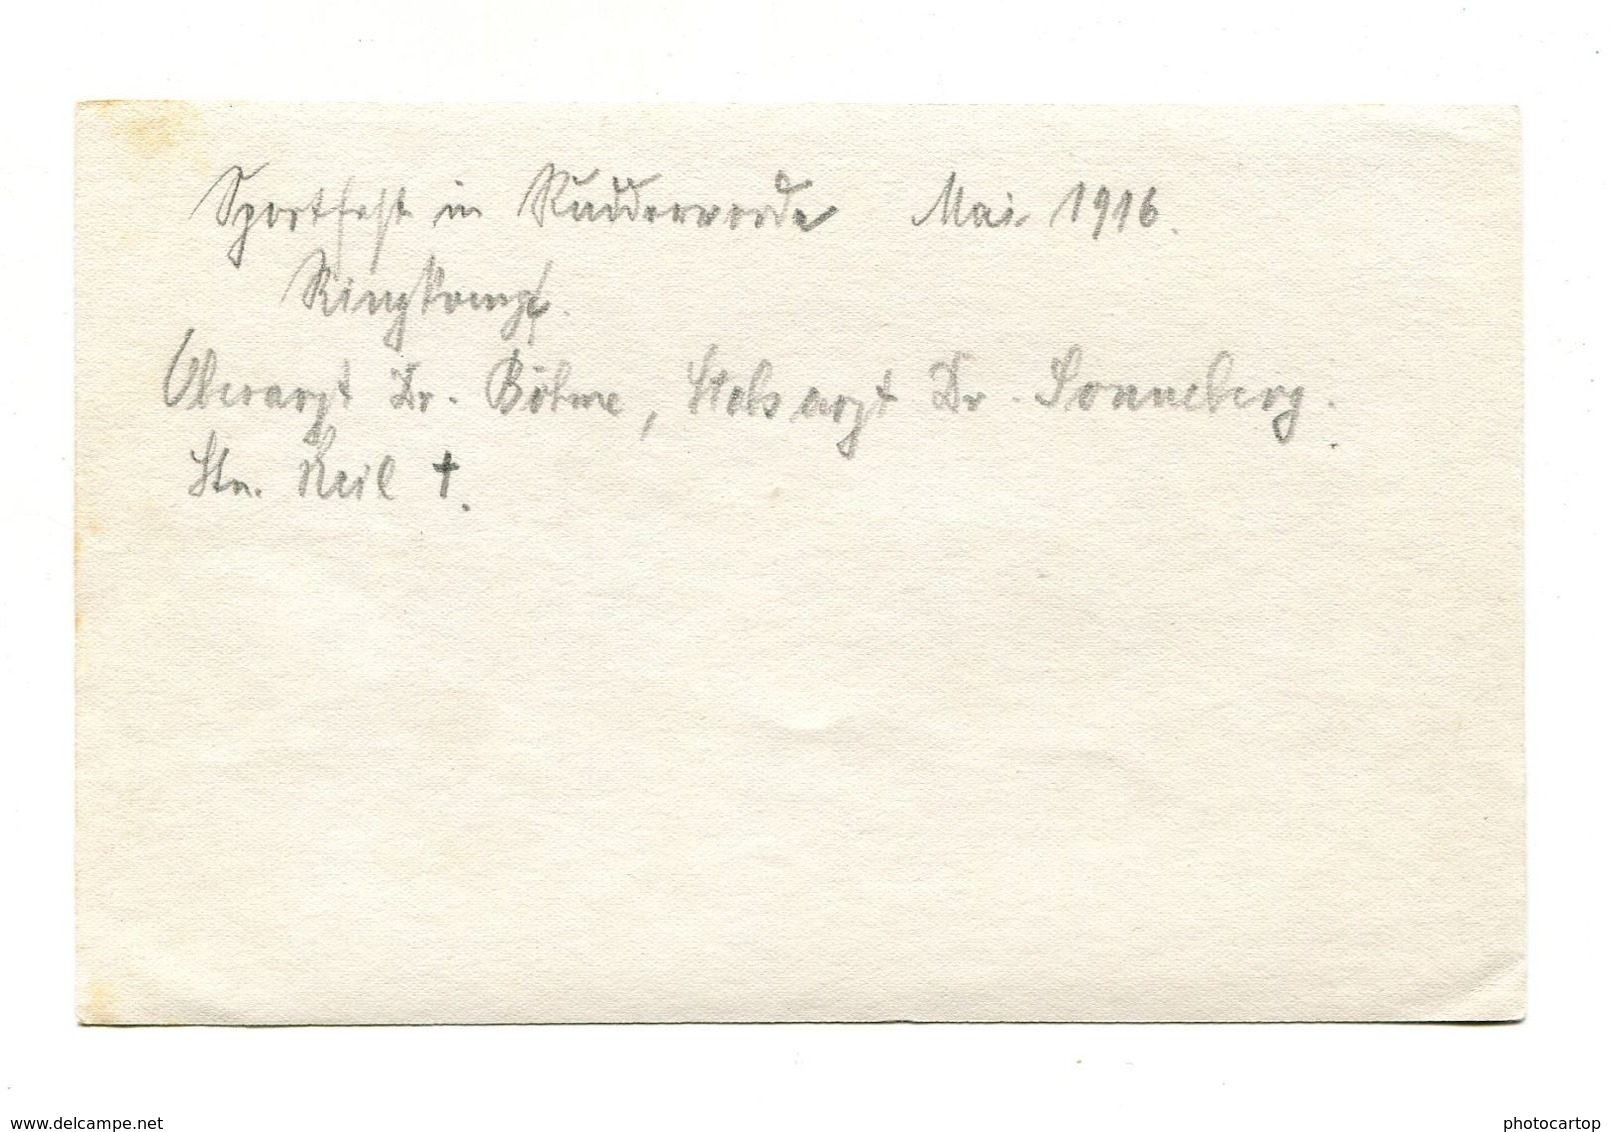 Sportfest in Rudderworde Mai 1916.
Ringkampf.
Oberarzt Dr. Böhme, Stabsarzt Dr. Sonneberg.
Ltn. Keil †.
www.delcampe.net
photocartop